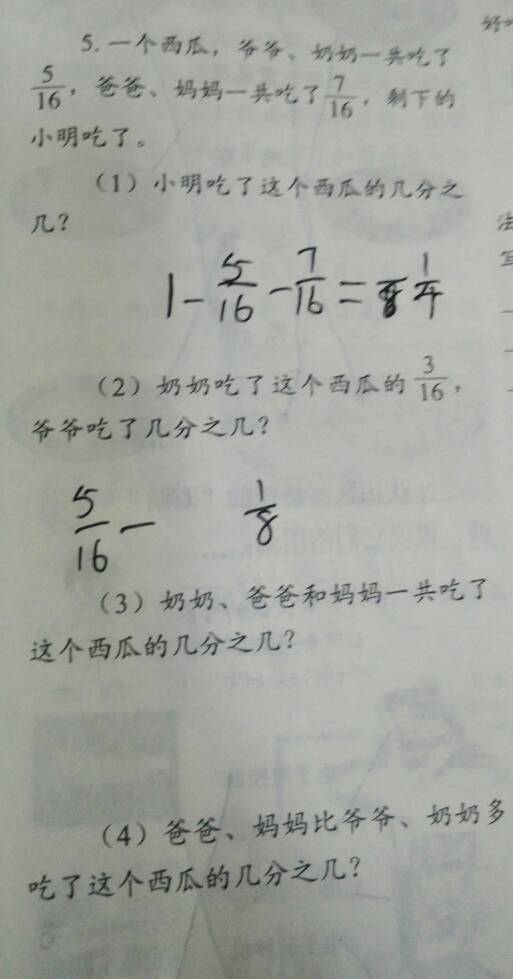 5. 一个西瓜，爷爷、奶奶一共吃了
5/16，爸爸、妈妈一共吃了7/16，剩下的
小明吃了。
（1）小明吃了这个西瓜的几分之
几？
1-5/16-7/16=1/4
（2）奶奶吃了这个西瓜的3/16，
爷爷吃了几分之几？
5/16- 1/8
（3）奶奶、爸爸和妈妈一共吃了
这个西瓜的几分之几？
（4）爸爸、妈妈比爷爷、奶奶多
吃了这个西瓜的几分之几？